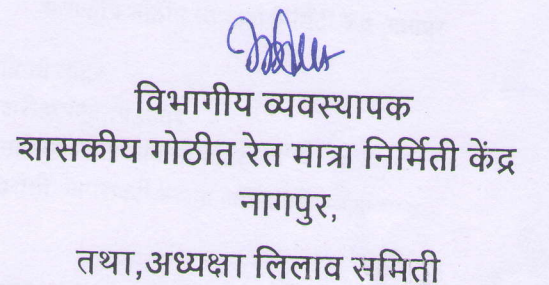 विभागीय व्यवस्थापक
शासकीय गोठीत रेत मात्रा निर्मिती केंद्र
नागपुर,
तथा,अध्यक्षा लिलाव समिती